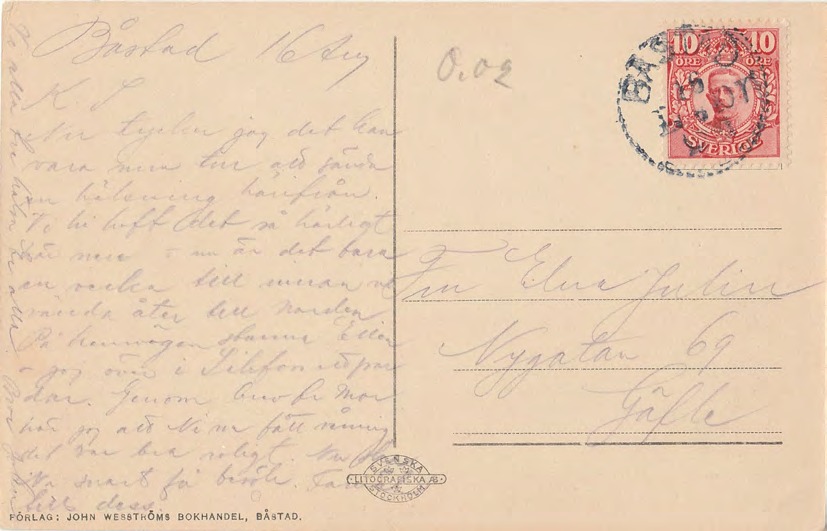 Båstad 16 Aug
K. S
Nu tycker jag det kan
vara min tur att sända
en hälsning härifrån.
Vi ha haft det så härligt
här nere o nu är det bara
en vecka till innan vi
vända åter till norden
På hemvägen stanna Ellen
o jag över i
dar. Genom brev fr Mor
hör jag att Ni nu fått våning
det var bra roligt. Nu
snart få besök.
till dess
0.02
BÅSTAD
10 ÖRE 10 ÖRE
SVERIGE
Fru Elna Julin
Nygatan 69
Gäfle
SVENSKA
LITOGRAFISKA AB.
STOCKHOLM
FÖRLAG: JOHN WESSTRÖMS BOKHANDEL, BÅSTAD.